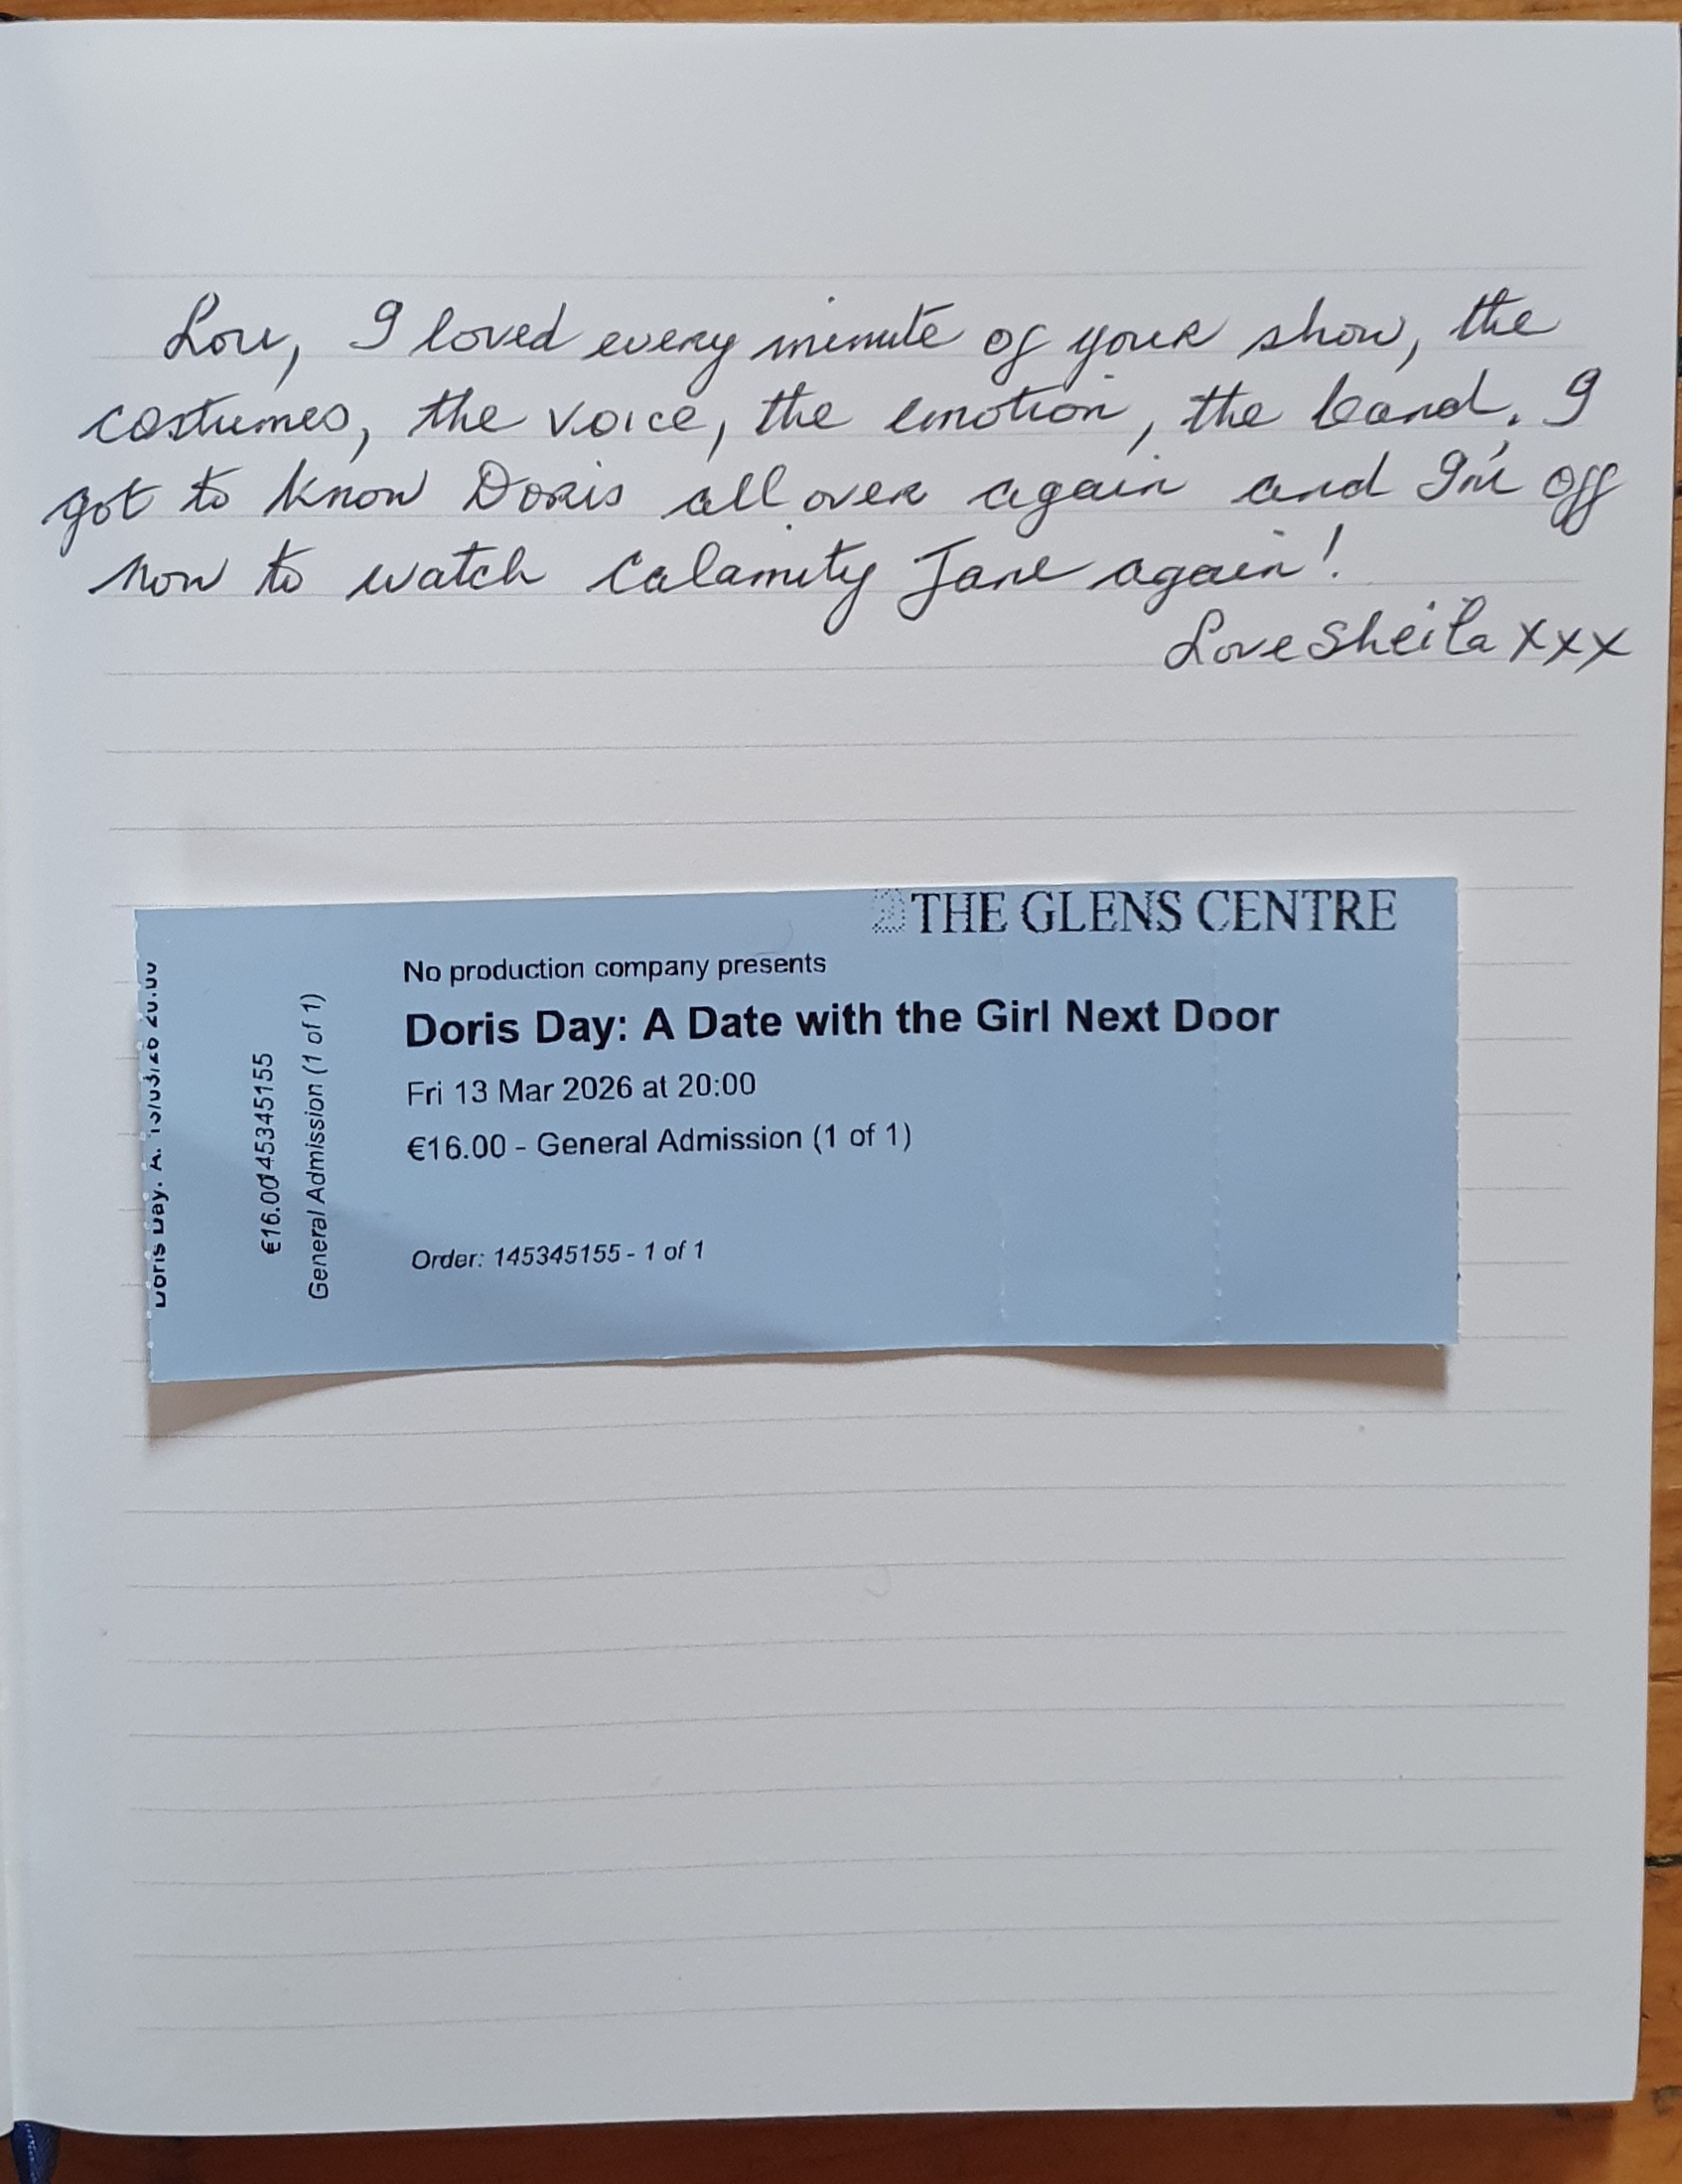 Lou, I loved every minute of your show, the
costumes, the voice, the emotion, the band. I
got to know Doris all over again and I'm off
now to watch Calamity Jane again!
Love Sheila xxx
THE GLENS CENTRE
No production company presents
Doris Day: A Date with the Girl Next Door
Fri 13 Mar 2026 at 20:00
€16.00 - General Admission (1 of 1)
Order: 145345155 - 1 of 1
Doris Day: A. 13/03/26 20:00
€16.00145345155
General Admission (1 of 1)